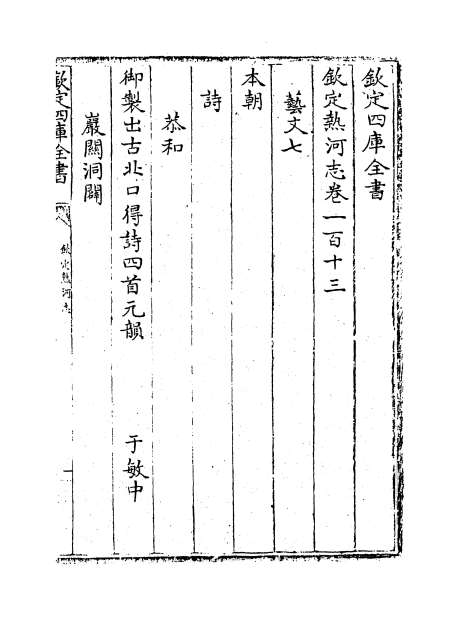 欽定四庫全書
欽定熱河志卷一百十三
藝文七
本朝
詩
恭和
御製出古北口得詩四首元韻　于敏中
巖關洞闢
欽定四庫全書
欽定熱河志
一